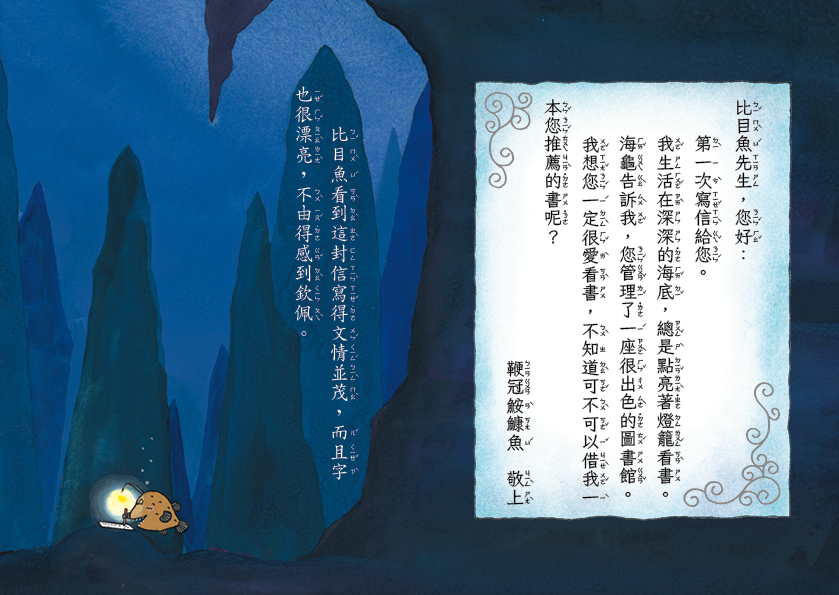 比目魚先生，您好：
第一次寫信給您。
我生活在深深的海底，總是點亮著燈籠看書。
海龜告訴我，您管理了一座很出色的圖書館。
我想您一定很愛看書，不知道可不可以借我一
本您推薦的書呢？
鞭冠鮟鱇魚　敬上
比目魚看到這封信寫得文情並茂，而且字
也很漂亮，不由得感到欽佩。